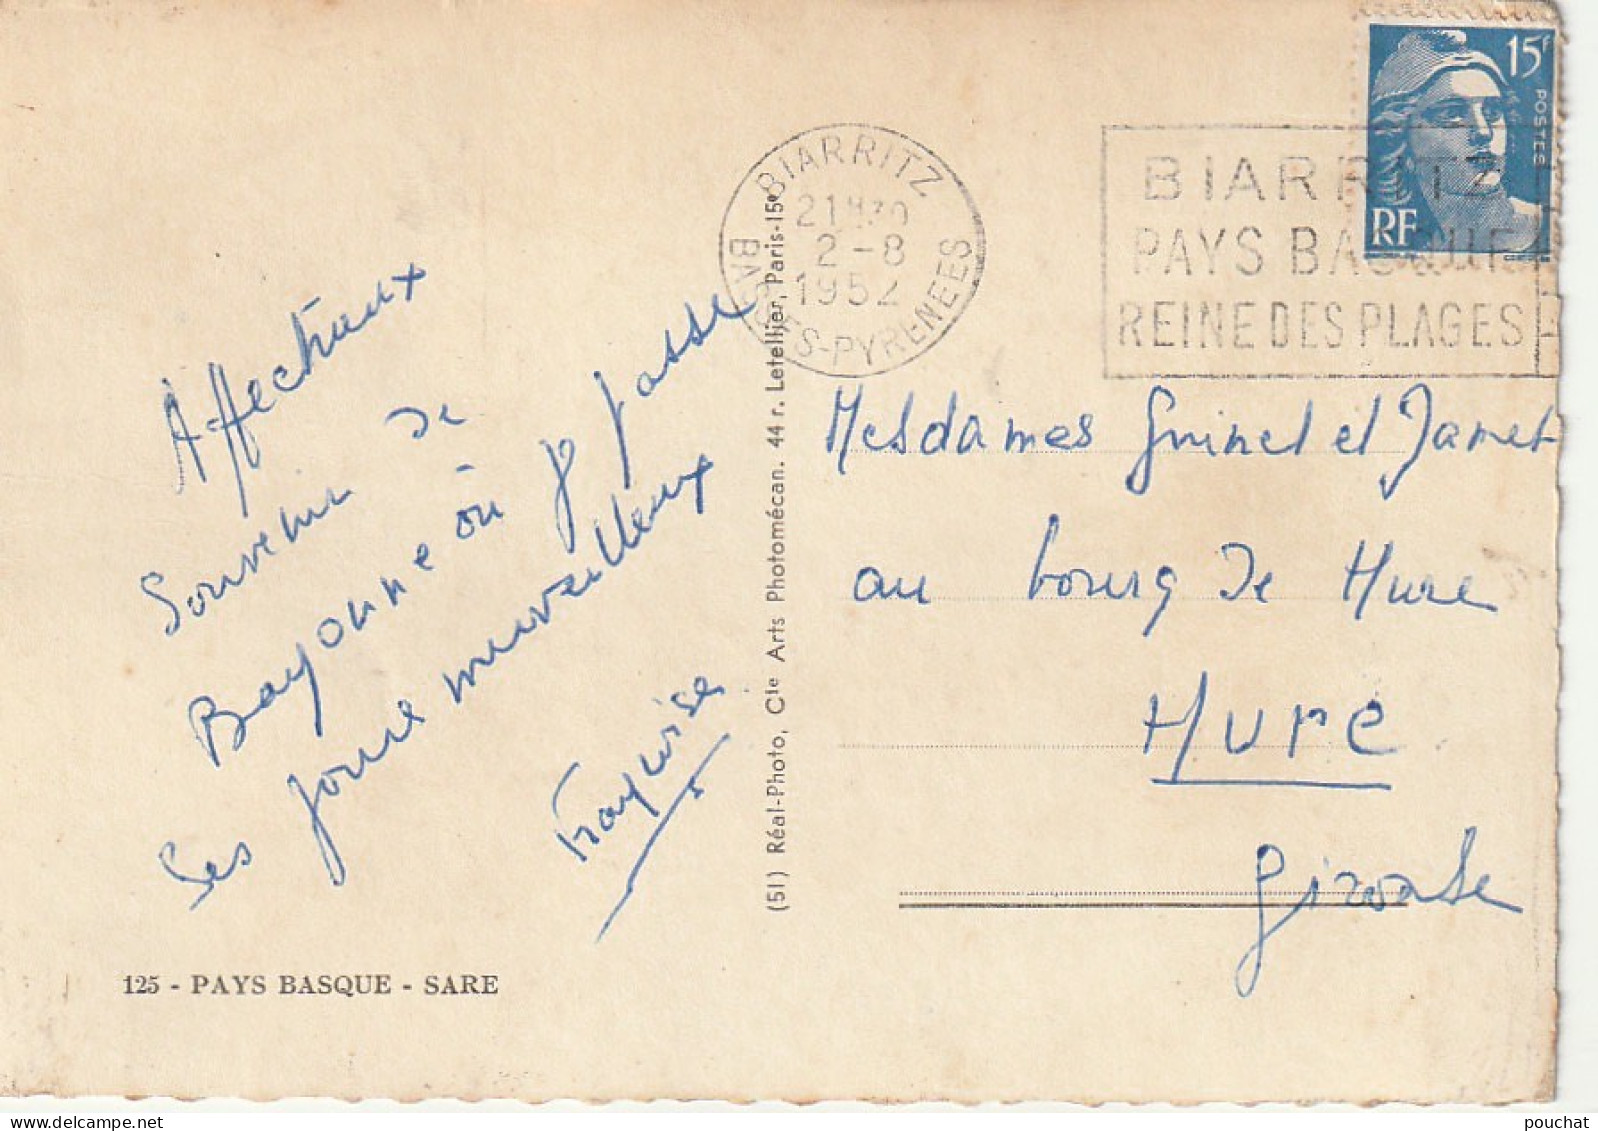 15F
POSTES
RF
BIARRITZ
21H30
2-8
1952
BASSES-PYRENEES
BIARRITZ
PAYS BASQUE
REINE DES PLAGES
Affectueux
Souvenir de
Bayonne où je passe
des jours merveilleux
Françoise
125 - PAYS BASQUE - SARE
(51) Réal-Photo, Cie Arts Photomécan. 44 r. Letellier, Paris-15e
Mesdames Guinel et Jamet
au bourg de Hure
Hure
Gironde
pouchat